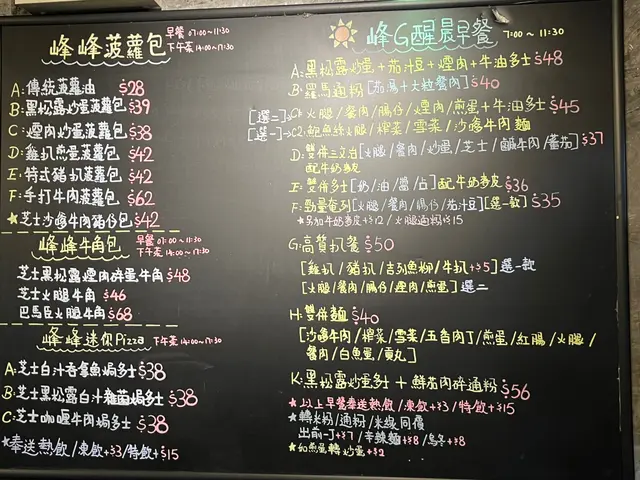 峰峰菠蘿包
早餐 07:00~11:30
下午茶 14:00~17:30
A:傳統菠蘿油 $28
B:黑松露炒蛋菠蘿包 $39
C:煙肉炒蛋菠蘿包 $38
D:雞扒煎蛋菠蘿包 $42
E:特式豬扒菠蘿包 $42
F:手打牛肉菠蘿包 $62
★芝士沙嗲牛肉豬仔包 $42
峰峰牛角包
早餐 07:00~11:30
下午茶 14:00~17:30
芝士黑松露煙肉碎蛋牛角 $48
芝士火腿牛角 $46
巴馬臣火腿牛角 $68
峰峰迷你Pizza 下午茶 14:00~17:30
A:芝士白汁吞拿魚焗多士 $38
B:芝士黑松露白汁雜菌焗多士 $38
C:芝士咖喱牛肉焗多士 $38
★奉送熱飲/凍飲+$3/特飲+$15
峰G醒晨早餐 7:00~11:30
A:黑松露炒蛋+茄汁豆+煙肉+牛油多士 $48
B:羅馬通粉[茄湯+大粒餐肉] $40
[選二]C1:火腿/餐肉/腸仔/煙肉/煎蛋+牛油多士 $45
[選一]C2:鮑魚絲火腿/榨菜/雪菜/沙嗲牛肉麵
D:雙併三文治[火腿/餐肉/炒蛋/芝士/鹹牛肉/蕃茄] $37
配牛奶麥皮
E:雙併多士[奶/油/醬/占]配牛奶麥皮 $36
F:勁量奄列[火腿/餐肉/腸仔/茄汁豆][選一款] $35
★另加牛奶麥皮+$12/火腿通粉+$15
G:高質扒餐 $50
[雞扒/豬扒/吉列魚柳/牛扒+$5]選一款
[火腿/餐肉/腸仔/煙肉/煎蛋]選二
H:雙併麵 $40
[沙嗲牛肉/榨菜/雪菜/五香肉丁/煎蛋/紅腸/火腿/
餐肉/白魚蛋/貢丸]
K:黑松露炒蛋多士+鮮茄肉碎通粉 $56
★以上早餐奉送熱飲/凍飲+$3/特飲+$15
★轉米粉/通粉/米線同價
出前一丁+$7/辛辣麵+$8/烏冬+$8
★如煎蛋轉炒蛋+$2